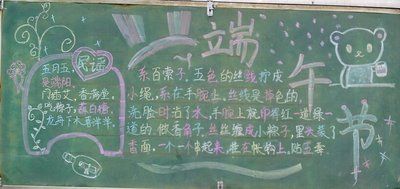 端午节
民谣
五月五，
是端阳
门插艾，香满堂，
吃粽子，蘸白糖，
龙舟下水喜洋洋
系百索子，五色的丝线拧成
小绳，系在手腕上，丝线是掉色的，
洗脸时沾了水，手腕上就印得红一道绿一
道的，做香角子，丝丝缠成小粽子，里头装了
香面，一个一个串起来，挂在帐钩上，贴五毒